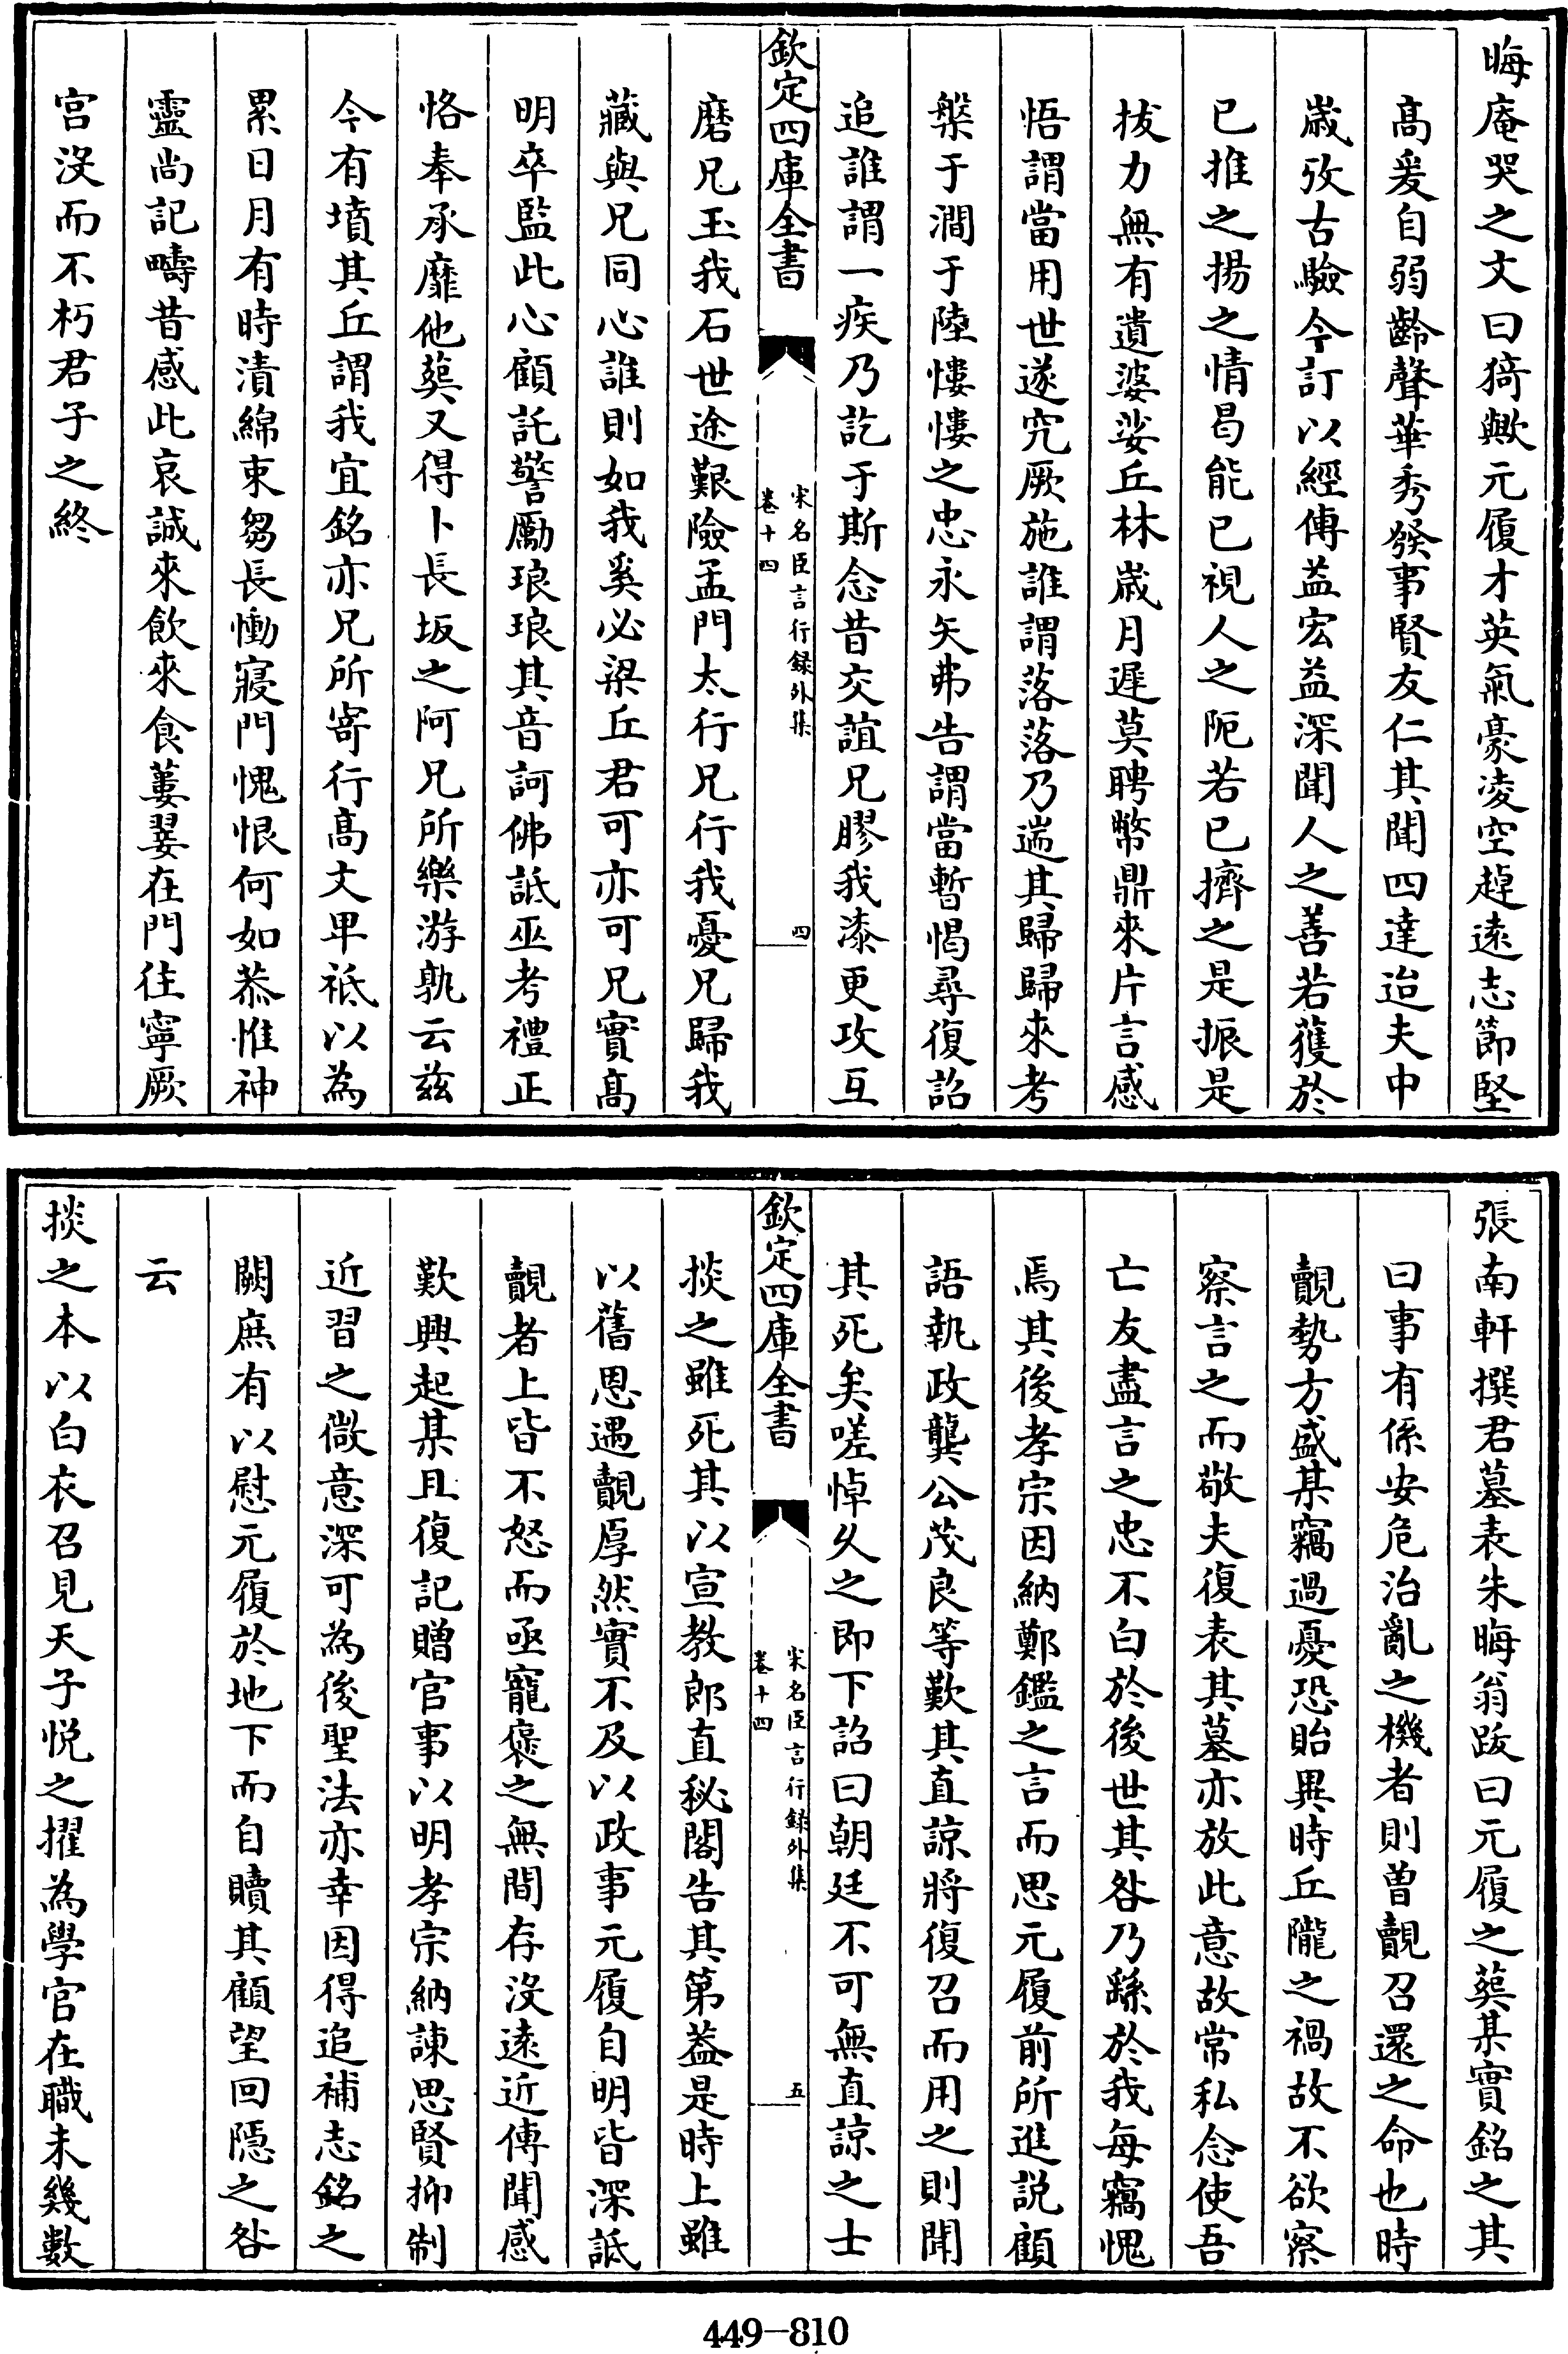 晦庵哭之文曰猗歟元履才英氣豪凌空趠逺志節堅
髙爰自弱齡聲華秀發事賢友仁其聞四達迨夫中
歳攷古驗今訂以經傳益宏益深聞人之善若獲於
已推之揚之情曷能已視人之阨若已擠之是振是
拔力無有遺婆娑丘林歳月遲莫聘幣鼎來片言感
悟謂當用世遂究厥施誰謂落落乃遄其歸歸來考
槃于澗于陸慺慺之忠永矢弗告謂當暫愒尋復詔
追誰謂一疾乃訖于斯念昔交誼兄膠我漆更攻互
欽定四庫全書
宋名臣言行録外集
卷十四
四
磨兄玉我石世途艱險孟門太行兄行我憂兄歸我
藏與兄同心誰則如我奚必梁丘君可亦可兄實髙
明卒監此心顧託警勵琅琅其音訶佛詆巫考禮正
恪奉承靡他葬又得卜長坂之阿兄所樂游孰云兹
今有墳其丘謂我宜銘亦兄所寄行髙文卑祗以為
累日月有時漬綿束芻長慟寢門愧恨何如恭惟神
靈尚記疇昔感此哀誠來飲來食蔞翣在門往寧厥
宫沒而不朽君子之終
張南軒撰君墓表朱晦翁跋曰元履之葬某實銘之其
曰事有係安危治亂之機者則曽覿召還之命也時
覿勢方盛某竊過憂恐貽異時丘隴之禍故不欲察
察言之而敬夫復表其墓亦放此意故常私念使吾
亡友盡言之忠不白於後世其咎乃繇於我每竊愧
焉其後孝宗因納鄭鑑之言而思元履前所進説顧
語執政龔公茂良等歎其直諒將復召而用之則聞
其死矣嗟悼乆之即下詔曰朝廷不可無直諒之士
欽定四庫全書
宋名臣言行録外集
卷十四
五
掞之雖死其以宣教郎直秘閣告其第葢是時上雖
以舊恩遇覿厚然實不及以政事元履自明皆深詆
覿者上皆不怒而亟寵褒之無間存沒逺近傳聞感
歎興起某且復記贈官事以明孝宗納諌思賢抑制
近習之微意深可為後聖法亦幸因得追補志銘之
闕庶有以慰元履於地下而自贖其顧望回隱之咎
云
掞之本以白衣召見天子悦之擢為學官在職未幾數
449-810